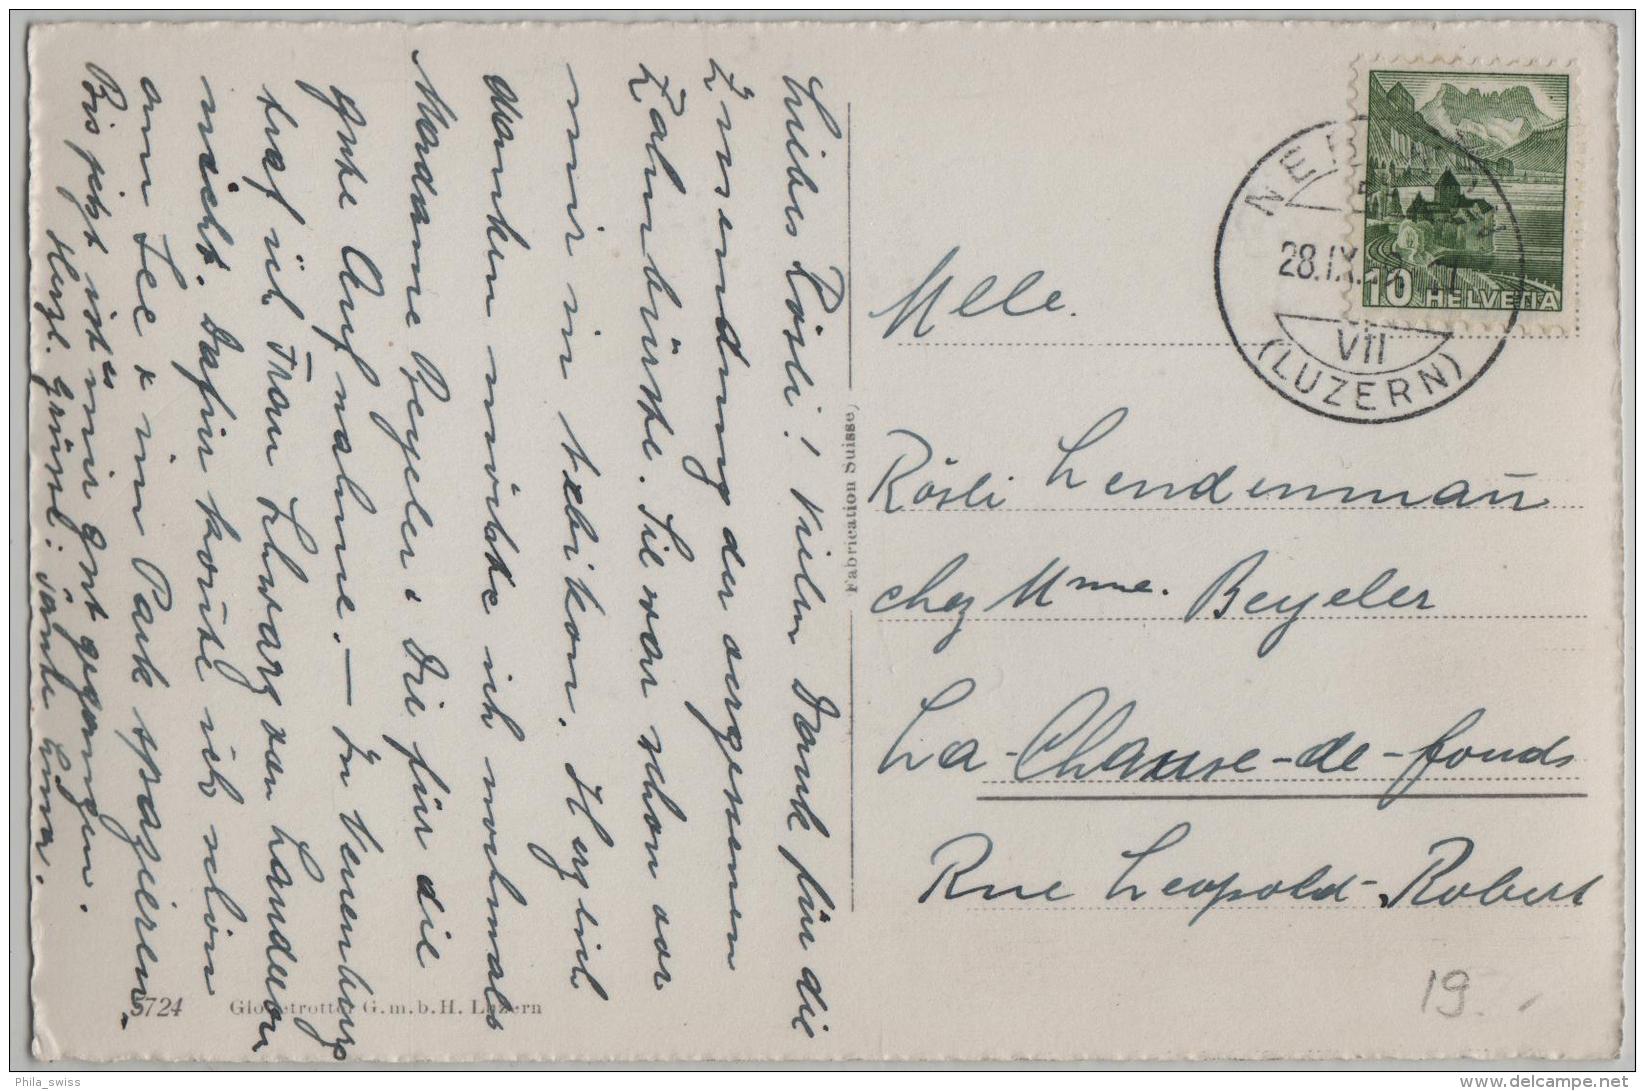 Liebes Rösli! Vielen Dank für die
Zusendung der vergessenen
Zahnbürste. Sie war schon vor
mir in Ebikon. Herzlich
danken möchte ich nochmals
Madame Beyeler. Die für die
gute Aufnahme. — In
traf ich Frau Schwarz von Landeron
nicht. Dafür konnte ich schön
am See & im Park spazieren.
Bis jetzt ist es mir gut gegangen.
Herzl. Grüsse: Tante Emma.
5724 Globetrotter G.m.b.H. Luzern
Fabrication Suisse
NEU
28.IX.
VII
(LUZERN)
10 HELVETIA
Mlle.
Rösli Lendenmañ
chez Mme. Beyeler
La-Chaux-de-fonds
Rue Leopold-Robert
19.-
Phila_swiss
www.delcampe.net